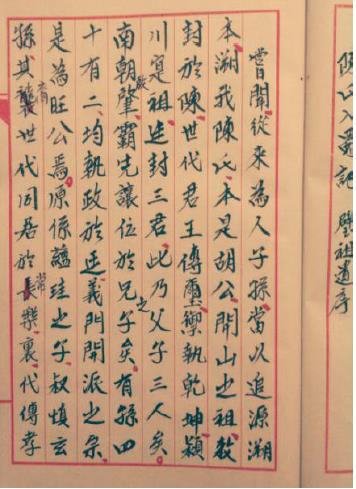 嘗聞從來為人子孫當以追源溯
本溯我陳氏本是胡公開山之祖敕
封於陳世代君王傳璽禦執乾坤潁
川寔祖廷封三君此乃父子三人矣之
南朝肇霸先讓位於兄子矣有孫四厥
十有二均執政於廷義門開派之宗
是為旺公焉原係蘊珪之子叔慎玄
孫其襲世代同居於長樂裏代傳孝裔常
陳氏入 記 遺序